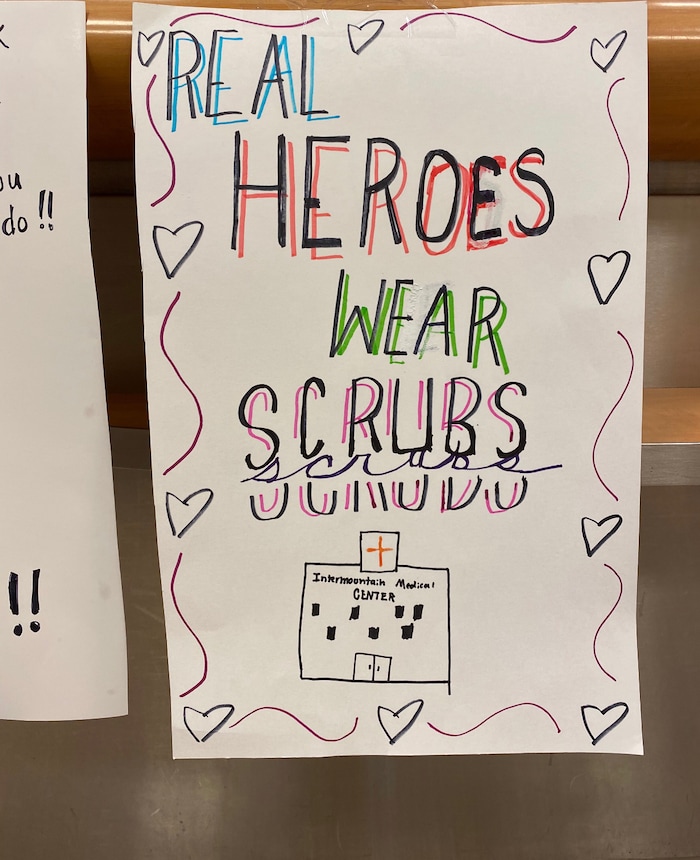 ou
do !!
!!
REAL
HEROES
WEAR
SCRUBS
scrubs
Intermountain Medical
CENTER